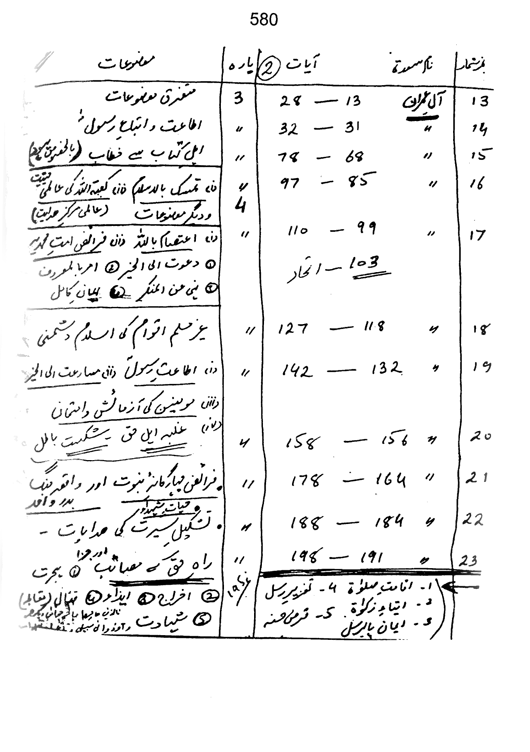 580
نمبر شمار نام سورۃ آیات (2) پارہ موضوعات
13 آلِ عمران 13 — 28 3 متفرق موضوعات
14 〃 31 — 32 〃 اطاعت و اتباعِ رسولؐ
15 〃 68 — 78 〃 اہلِ کتاب سے خطاب
16 〃 85 — 97 〃 (i) تمسک بالاسلام (ii) کعبۃ اللہ کی عالمی
4 ودیگر موضوعات (عالمی مرکزِ ہدایت)
17 〃 99 — 110 〃 (i) اعتصام باللہ (ii) فرائضِ امتِ محمدیہ
103 — اتحاد ① دعوت الی الخیر ② امر بالمعروف
③ نہی عن المنکر ④ ایمانِ کامل
18 〃 118 — 127 〃 غیر مسلم اقوام کی اسلام دشمنی
19 〃 132 — 142 〃 (i) اطاعتِ رسولؐ (ii) مسارعت الی الخیر
(iii) مومنین کی آزمائش و امتحان
20 〃 156 — 158 〃 (iv) غلبہ اہلِ حق — شکستِ باطل
21 〃 164 — 178 〃 فرائضِ چہارگانہ نبوت اور واقعہ جنگ
بدر و احد
حیاتِ شہداء
22 〃 184 — 188 〃 تشکیلِ سیرت کی ہدایات -
23 〃 191 — 198 〃 راہِ حق کے مصائب اور جزا ① ہجرت
1- اقامتِ صلوٰۃ 4- تعزیرِ رسل 195 ② اخراج ③ ایذاء ④ قتال
2- ایتاءِ زکوٰۃ 5- قرضِ حسنہ
3- ایمان بالرسل ⑤ شہادت